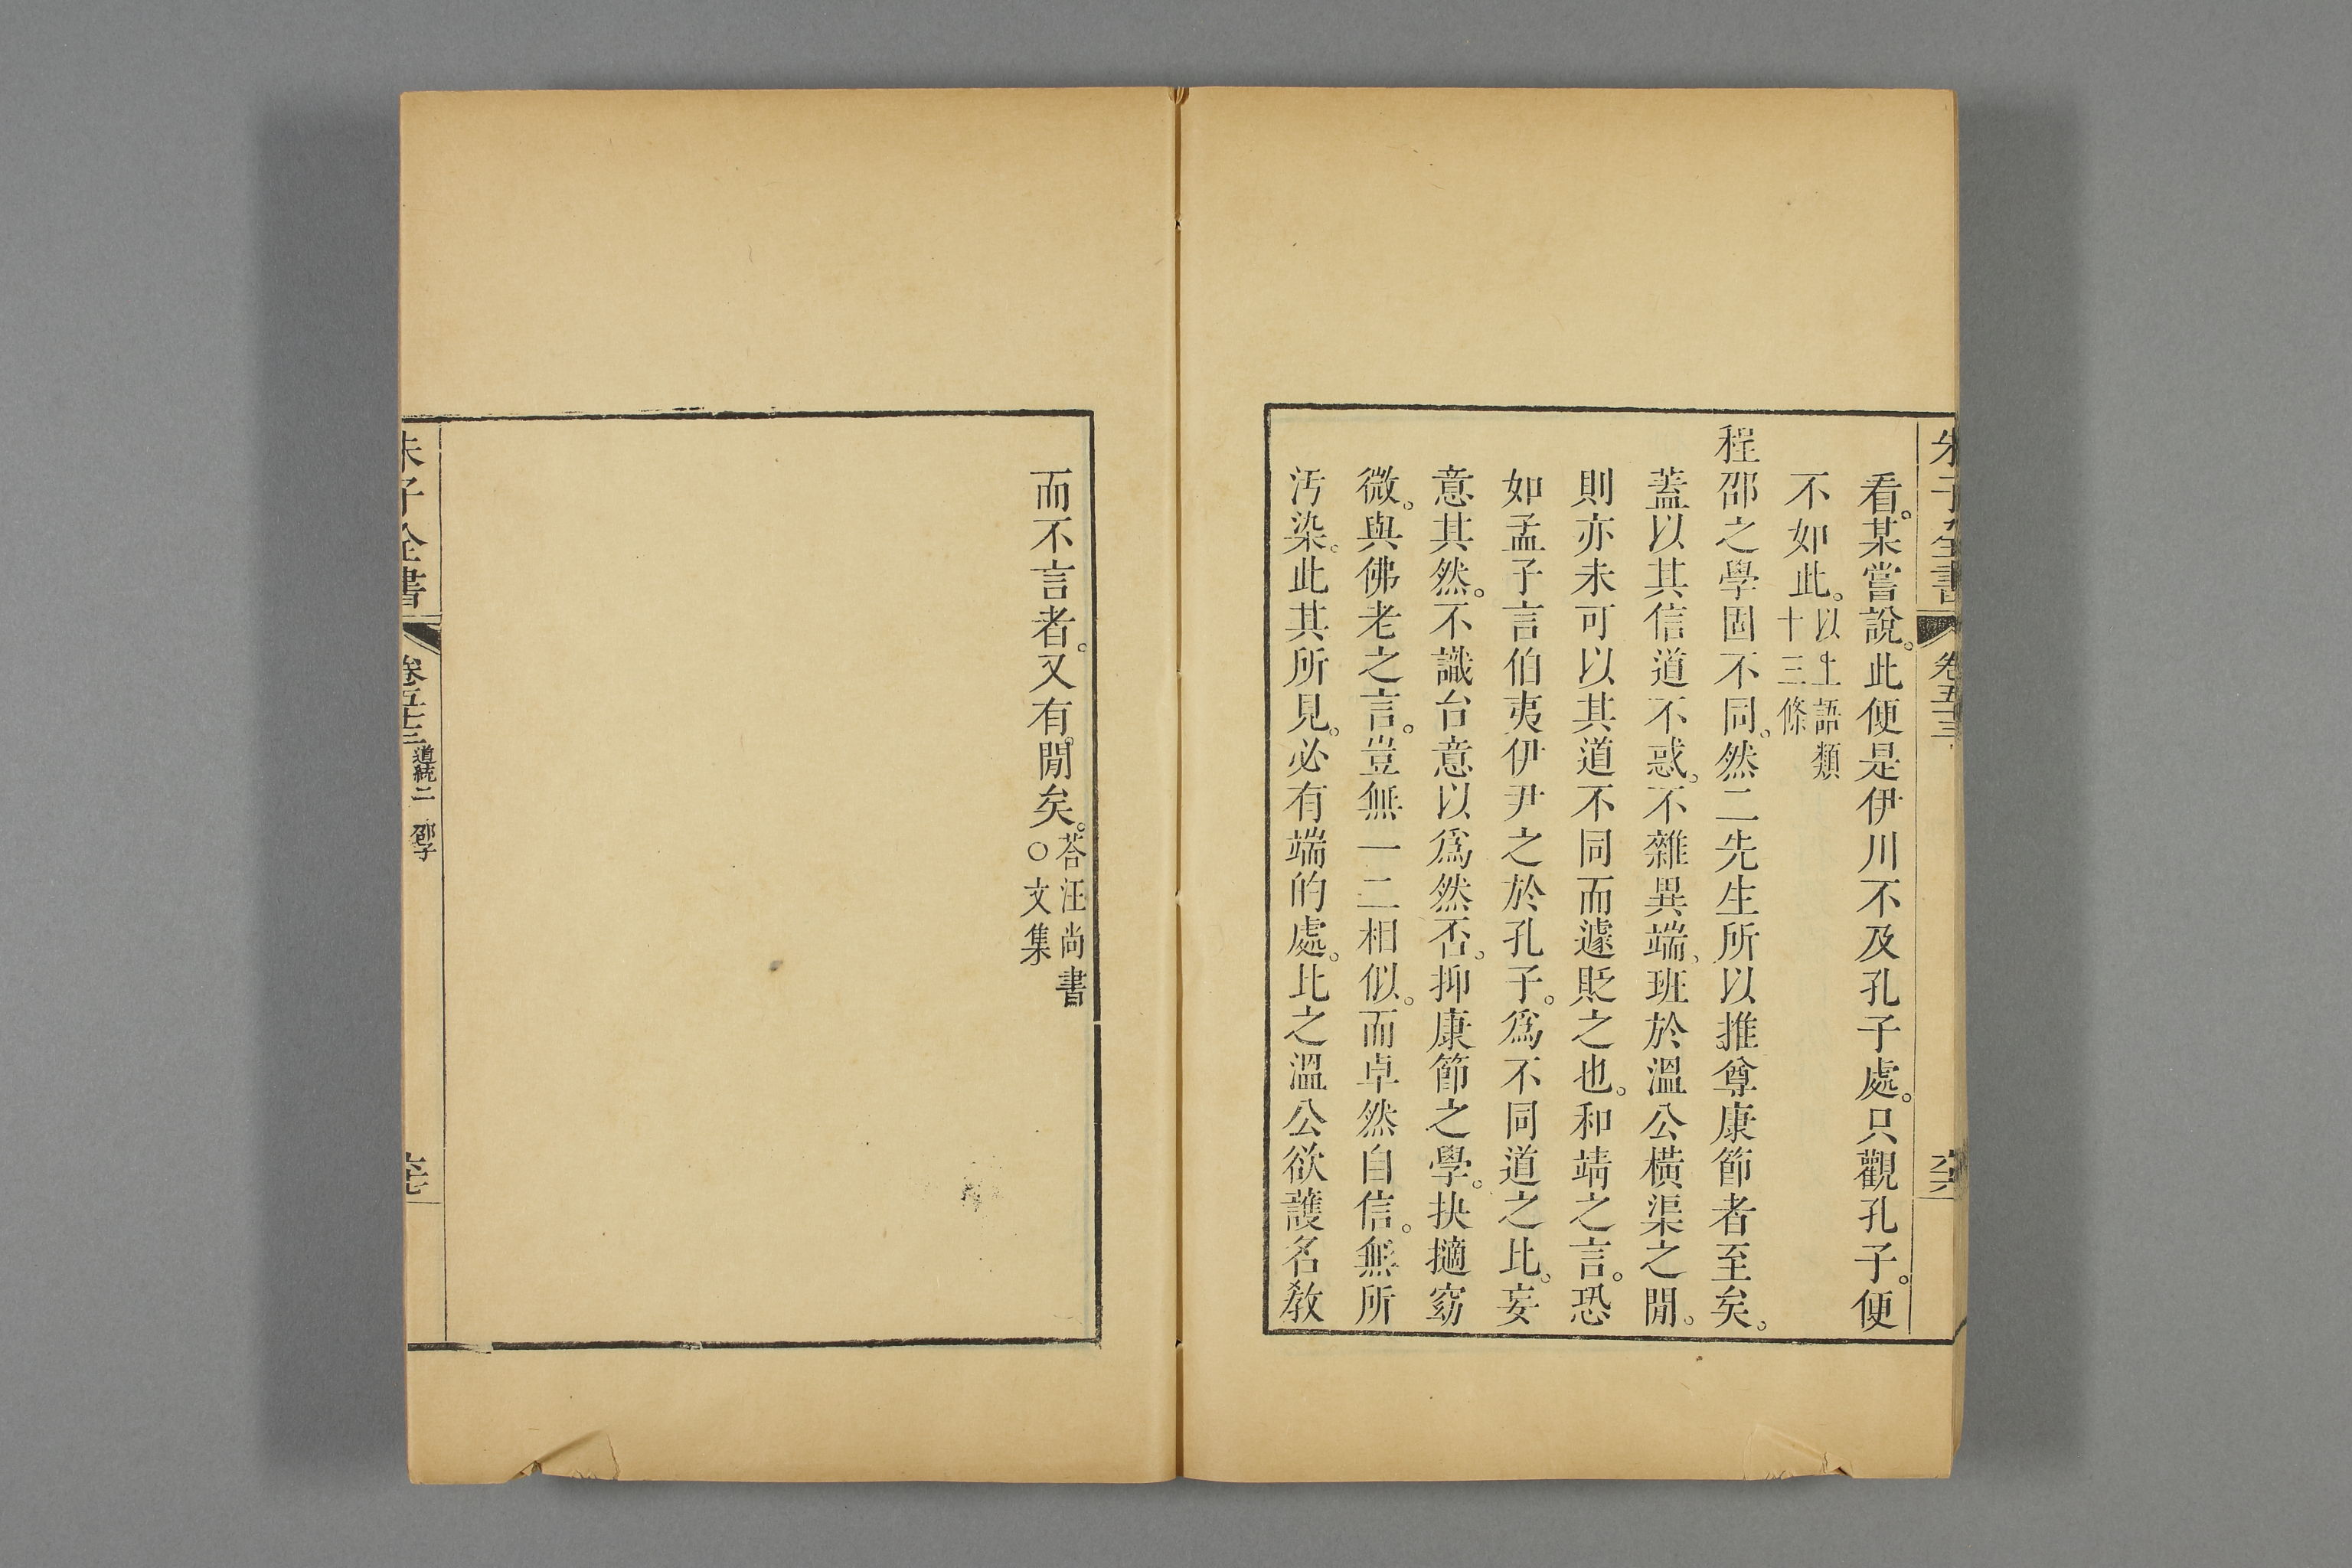 朱子全書 卷五十三
看。某嘗說。此便是伊川不及孔子處。只觀孔子。便
不如此。以上語類
十三條
程邵之學固不同。然二先生所以推尊康節者至矣。
蓋以其信道不惑、不雜異端、班於溫公橫渠之閒。
則亦未可以其道不同而遽貶之也。和靖之言。恐
如孟子言伯夷伊尹之於孔子。爲不同道之比。妄
意其然。不識台意以爲然否。抑康節之學。抉擿窈
微。與佛老之言。豈無一二相似。而卓然自信。無所
汚染。此其所見。必有端的處。比之溫公欲護名敎
而不言者。又有閒矣。答汪尚書
○文集
朱子全書 卷五十三 道統二 邵子